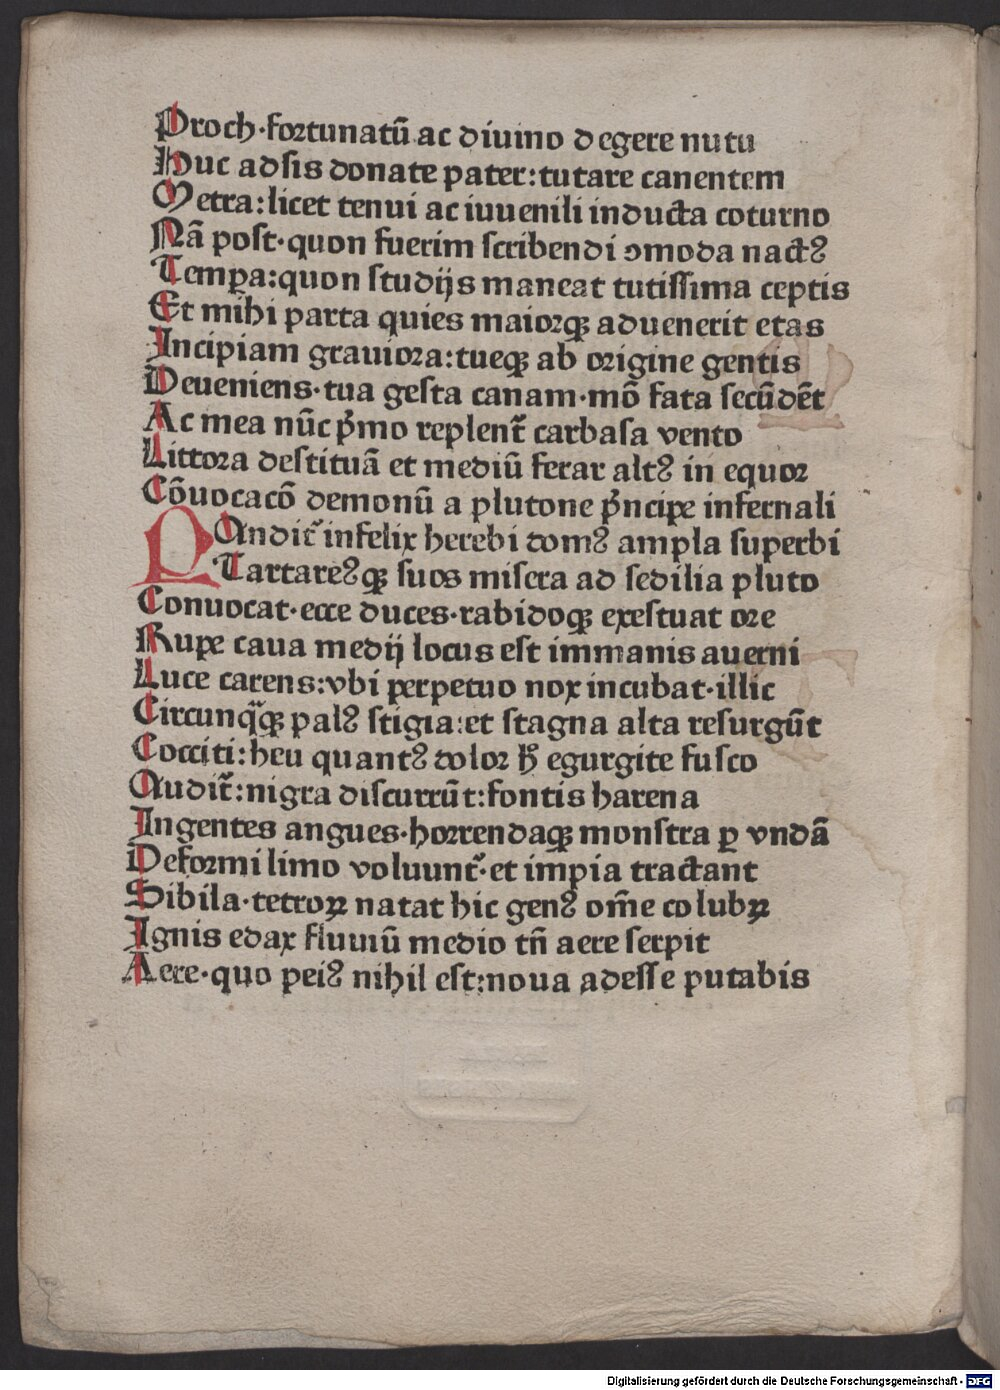 Proch·fortunatū ac diuino degere nutu
Huc adsis donate pater:tutare canentem
Metra:licet tenui ac iuuenili inducta coturno
Nā post·quon fuerim scribendi ꝯmoda nactꝰ
Temꝑa:quon studijs maneat tutissima ceptis
Et mihi parta quies maiorqꝫ aduenerit etas
Incipiam grauiora:tueqꝫ ab origine gentis
Deueniens·tua gesta canam·mō fata secūdēt
Ac mea nūc p̄mo replent᷑ carbasa vento
Littora destituā et mediū ferar altꝰ in equor
Cōuocacō demonū a plutone p̄ncipe infernali
PAndit᷑ infelix herebi domꝰ ampla superbi
Tartareꝰqꝫ suos misera ad sedilia pluto
Conuocat·ecce duces·rabidoqꝫ exestuat ore
Rupe caua medij locus est immanis auerni
Luce carens:vbi perpetuo nox incubat·illic
Circunq̄qꝫ palꝰ stigia:et stagna alta resurgūt
Cocciti:heu quantꝰ dolor h̄ egurgite fusco
Audit᷑:nigra discurrūt:fontis harena
Ingentes angues·horrendaqꝫ monstra ꝑ vndā
Deformi limo voluunt᷑·et impia tractant
Sibila·tetroꝝ natat hic genꝰ om̄e colubꝝ
Ignis edax fluuiū medio tn̄ aere serpit
Aere·quo peiꝰ nihil est:noua adesse putabis
Digitalisierung gefördert durch die Deutsche Forschungsgemeinschaft - DFG